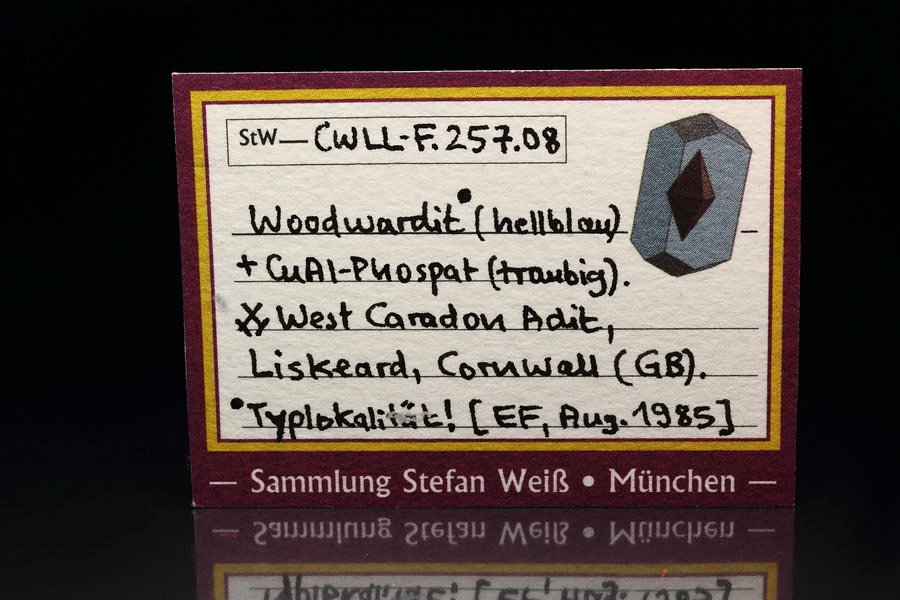 StW—CWLL-F.257.08
Woodwardit• (hellblau)
+ CuAl-Phospat (traubig).
⚒ West Caradon Adit,
Liskeard, Cornwall (GB).
•Typlokalität! [EF, Aug. 1985]
— Sammlung Stefan Weiß • München —